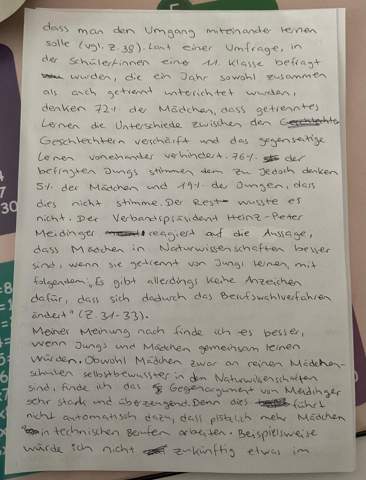 dass man den Umgang miteinander lernen
solle (vgl. Z 38). Laut einer Umfrage, in
der Schüler/innen eine 11. Klasse befragt
wurden, die ein Jahr sowohl zusammen
als auch getrennt unterichtet wurden,
denken 72% der Mädchen, dass getrenntes
Lernen die Unterschiede zwischen den
Geschlechtern verschärft und das gegenseitige
Lernen voneinander verhindert. 76% der
befragten Jungs stimmen dem zu. Jedoch denken
5% der Mädchen und 19% der Jungen, dass
dies nicht stimme. Der Rest wusste es
nicht. Der Verbandspräsident Heinz-Peter
Meidinger reagiert auf die Aussage,
dass Mädchen in Naturwissenschaften besser
sind, wenn sie getrennt von Jungs lernen, mit
folgendem „Es gibt allerdings keine Anzeichen
dafür, dass sich dadurch das Berufswahlverfahren
ändert" (Z 31-33).
Meiner Meinung nach finde ich es besser,
wenn Jungs und Mädchen gemeinsam lernen
würden. Obwohl Mädchen zwar an reinen Mädchen-
schulen selbstbewusster in den Naturwissenschaften
sind, finde ich das Gegenargument von Meidinger
sehr stark und überzeugend. Denn dies führt
nicht automatisch dazu, dass plötzlich mehr Mädchen
in technischen Berufen arbeiten. Beispielsweise
würde ich nicht zukünftig etwas im
7
30